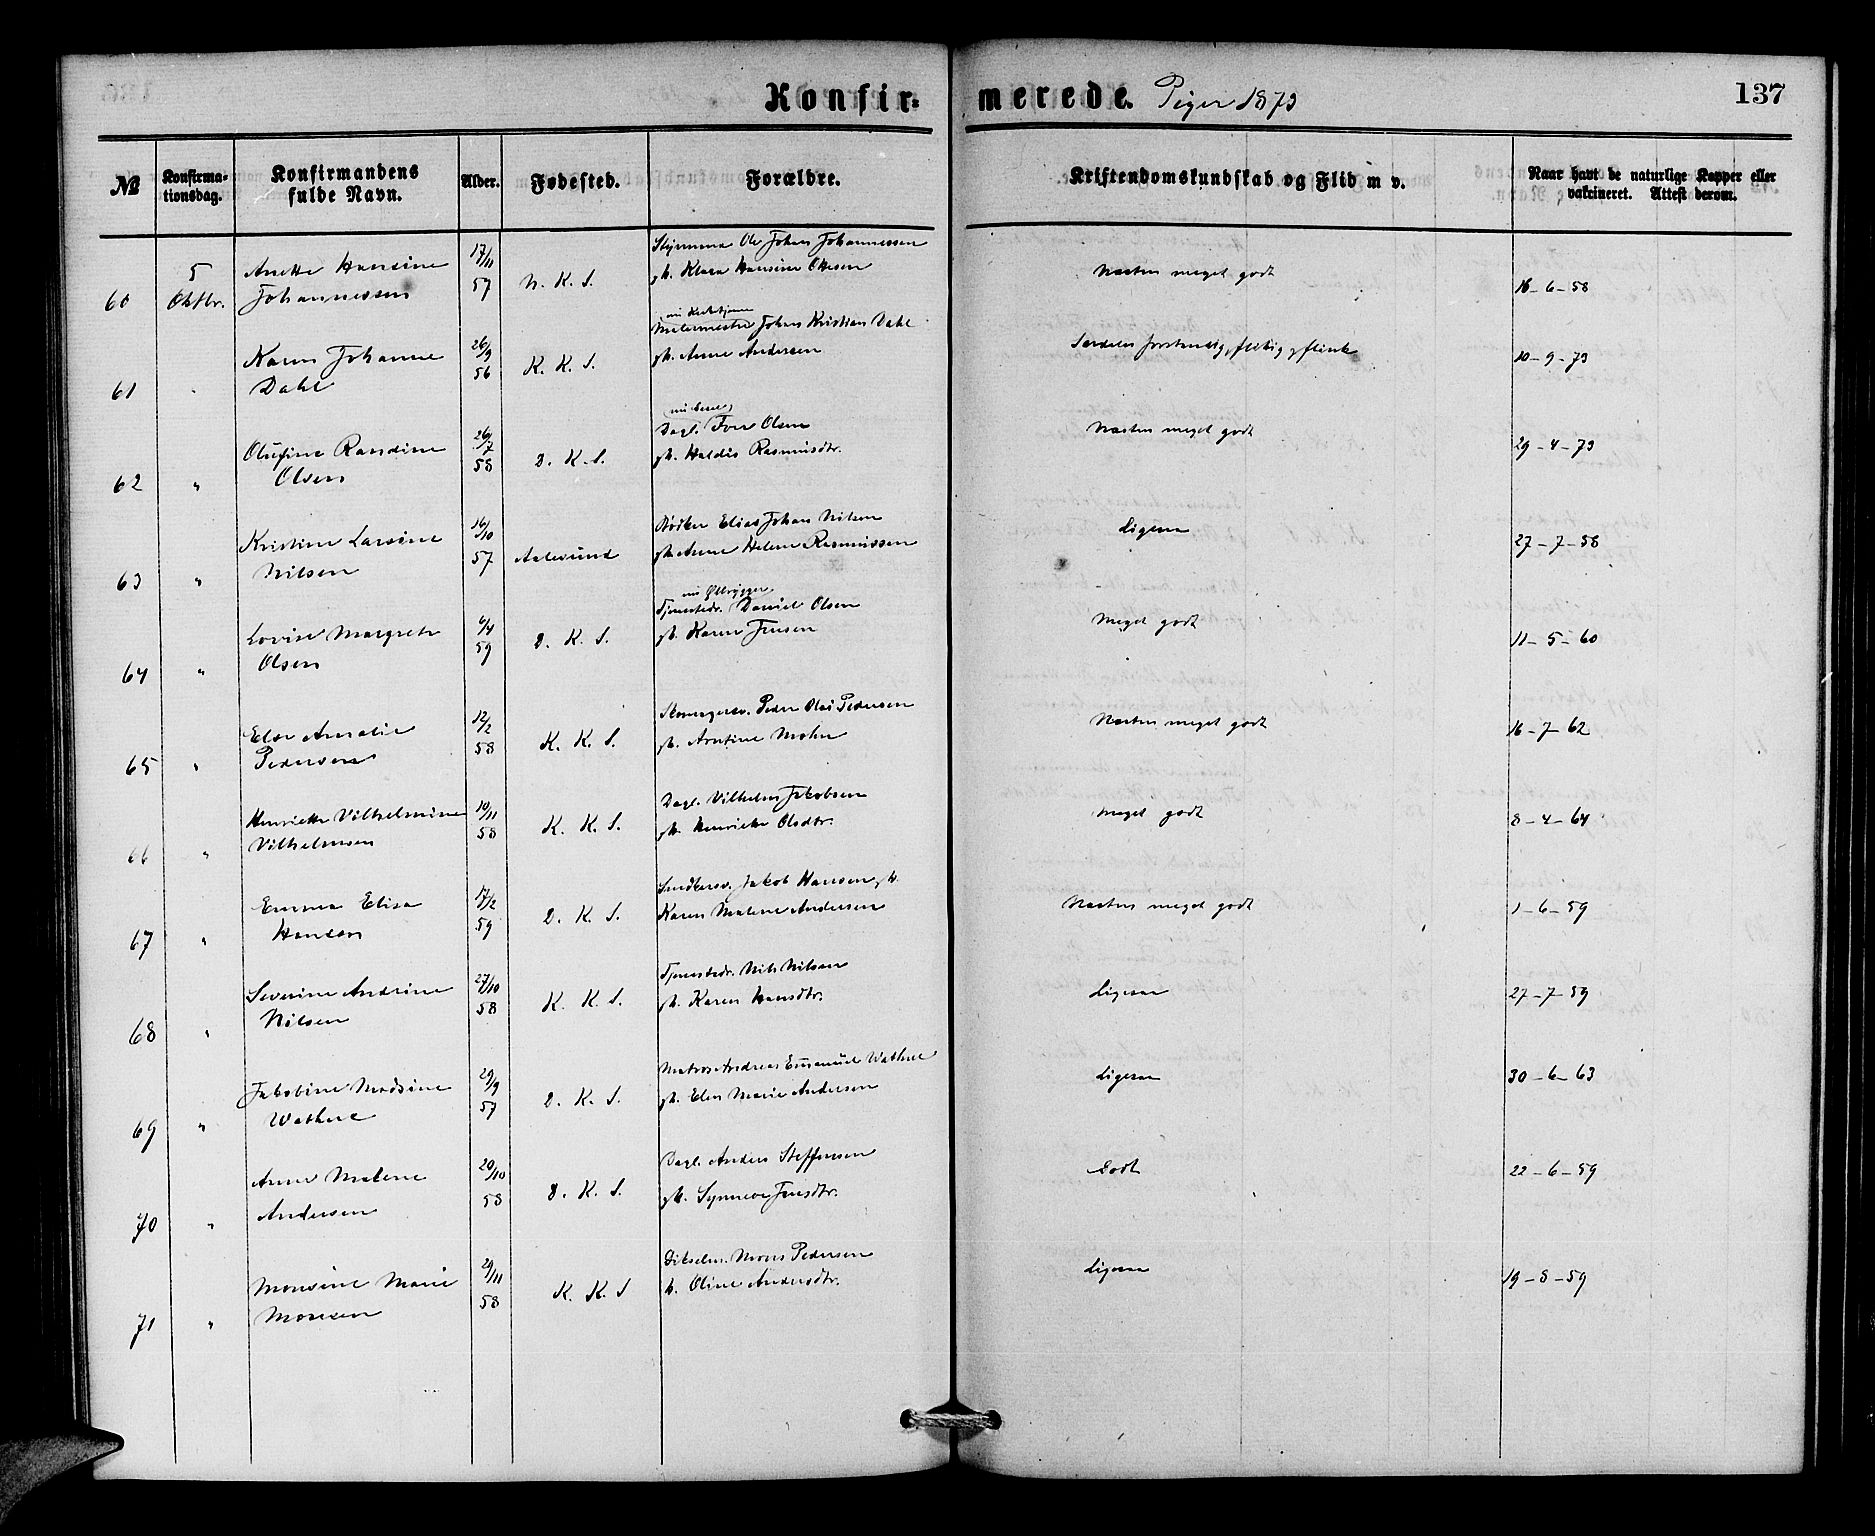 Konfir=
merede. Piger 1873
137
№
Konfirma=
tionsdag.
Konfirmandens
fulde Navn.
Alder.
Fødested.
Forældre.
Kristendomskundskab og Flid m v.
Naar havt de naturlige Kopper eller
vakcineret. Attest derom.
60
5
Oktbr.
Anette Hansine
Johannessen
17/11
57
N. K. S.
Styrmand Ole Johan Johannessen
gh. Klara Hansine Ottesen
Næsten meget godt
16-6-58
61
Karen Johanne
Dahl
26/9
56
K. K. S.
Malermester Johan Kristian Dahl
gh. Anne Andersen
Særdeles forstandig, flittig, flink
10-9-73
62
"
Olufine Randine
Olsen
26/7
58
D. K. S.
Dagl. Iver Olsen
gh. Haldis Rasmusdtr.
Næsten meget godt
29-4-73
63
"
Kristine Larsine
Nilsen
16/10
57
Aalesund
Bødker Elias Johan Nilsen
gh. Anne Helene Rasmussen
Ligesaa
27-7-58
64
"
Lovise Margrete
Olsen
6/4
59
D. K. S.
Tjenestedr. Daniel Olsen
gh. Karen Jensen
Meget godt
11-5-60
65
"
Else Amalie
Pedersen
12/2
58
K. K. S.
Skomagersv. Peder Olai Pedersen
gh. Arntine Mohn
Næsten meget godt
16-7-62
66
"
Henriette Vilhelmine
Vilhelmsen
10/11
58
K. K. S.
Dagl. Vilhelm Jakobsen
gh. Henriette Olsdtr.
Meget godt
8-4-64
67
"
Emma Elisa
Hansen
17/2
59
D. K. S.
Snedkersv. Jakob Hansen gh.
Karen Malene Andersen
Næsten meget godt
1-6-59
68
"
Severine Andrine
Nilsen
27/10
58
K. K. S.
Tjenestedr. Nils Nilsen
gh. Karen Hansdtr.
Ligesaa
27-7-59
69
"
Jakobine Madsine
Wathne
29/9
57
D. K. S.
Matros Andreas Emanuel Wathne
gh. Elen Marie Andersen
Ligesaa
30-6-63
70
"
Anne Malene
Andersen
20/10
58
D. K. S.
Dagl. Anders Steffensen
gh. Synneve Jensdtr.
Godt
22-6-59
71
"
Monsine Marie
Monsen
29/11
58
K. K. S
Mons Pedersen
h. Oline Andersdtr.
Ligesaa
19-8-59